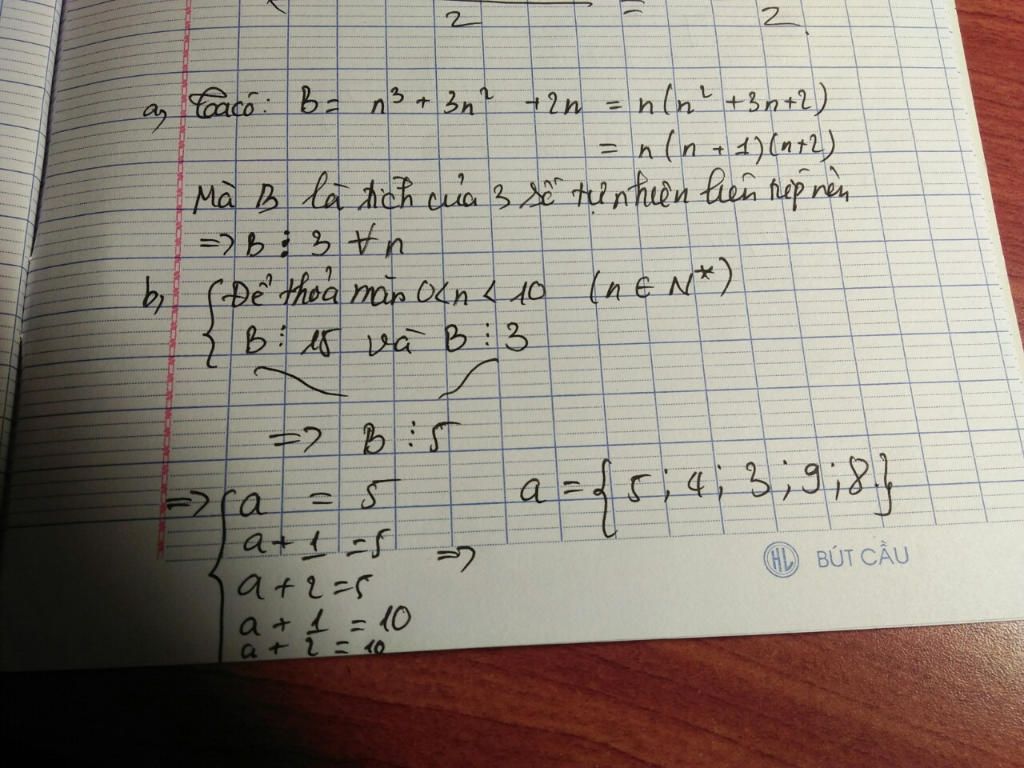 2 = 2
a, Ta có: B = n³ + 3n² + 2n = n(n² + 3n + 2)
= n(n + 1)(n+2)
Mà B là tích của 3 số tự nhiên liên tiếp nên
=> B ⋮ 3 ∀n
b, { Để thoả mãn 0<n < 10 (n ∈ N*)
B ⋮ 15 và B ⋮ 3
=> B ⋮ 5
=> { a = 5 a = { 5 ; 4 ; 3 ; 9 ; 8 }
a + 1 = 5 =>
a + 2 = 5
a + 1 = 10
a + 2 = 10
HL BÚT CẦU